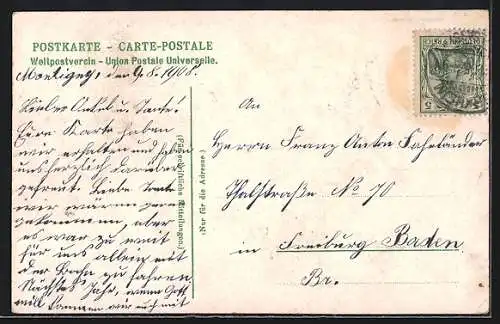 POSTKARTE – CARTE-POSTALE
Weltpostverein – Union Postale Universelle.
Montigny, den 9.8.1908.
Lieber Onkel u. Tante!
Eure Karte haben
wir erhalten und haben
uns herzlich darüber
gefreut. Liebe Tante
wir wären gern
gekommen aber
es war zu weit
für uns allein mit
der Bahn zu fahren
Nächstes Jahr, wenn Gott
will kommen wir auch mit
(Für schriftliche Mitteilungen.)
(Nur für die Adresse.)
An
Herrn Franz Anton Fahrländer
Thalstraße No 70
in Freiburg Baden
Br.
5